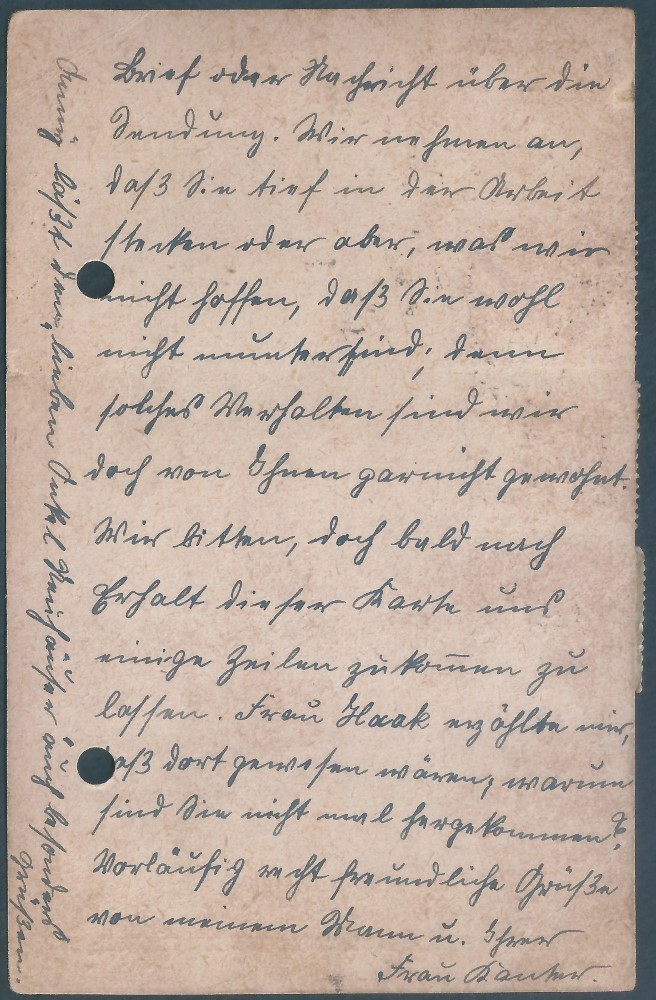 Brief oder Nachricht über die
Sendung. Wir nehmen an,
daß Sie tief in der Arbeit
stecken oder aber, was wir
nicht hoffen, daß Sie wohl
nicht munter sind; denn
solches Verhalten sind wir
doch von Ihnen garnicht gewohnt.
Wir bitten, doch bald nach
Erhalt dieser Karte uns
einige Zeilen zukom̅en zu
lassen. Frau Haak erzählte mir,
daß dort gewesen wären; warum
sind Sie nicht mal hergekommen?
Vorläufig recht freundliche Grüße
von meinem Mann u. Ihrer
Frau Kanter.
läßt den lieben Onkel Neuhäuser auch besonders
grüßen.